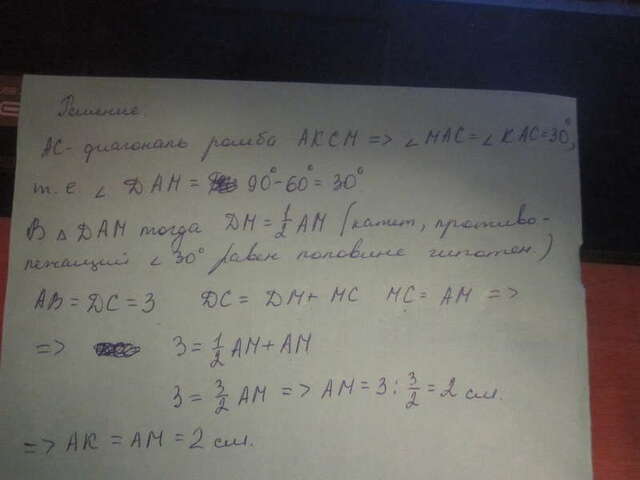 Решение.
AC - диагональ ромба AKCM => ∠MAC = ∠KAC = 30°,
т.е. ∠ DAM = 90° - 60° = 30°
В △ DAM тогда DM = 1/2 AM (катет, противо-
лежащий ∠ 30° равен половине гипотен.)
AB = DC = 3 DC = DM + MC MC = AM =>
=> 3 = 1/2 AM + AM
3 = 3/2 AM => AM = 3 : 3/2 = 2 см.
=> AK = AM = 2 см.